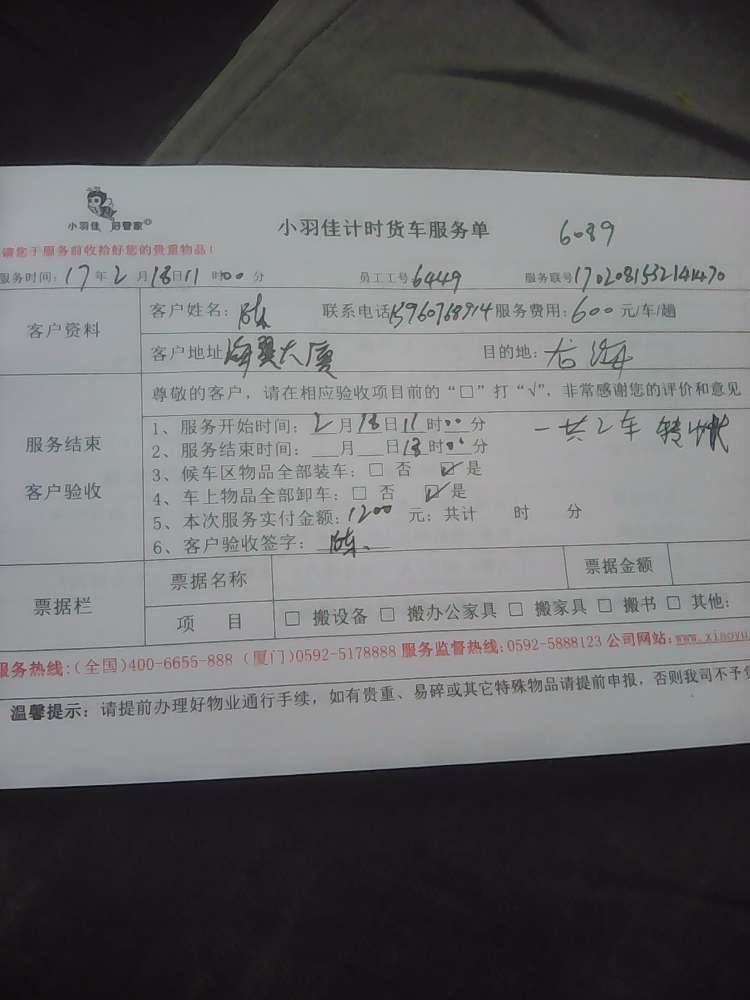 小羽佳 好管家
小羽佳计时货车服务单 6089
请您于服务前收拾好您的贵重物品！
服务时间：17年2月18日11时00分 员工工号6449 服务联号1702081532141470
客户资料
客户姓名：陈 联系电话15960768914 服务费用：600元/车/趟
客户地址海翼大厦 目的地：后海
服务结束
客户验收
尊敬的客户，请在相应验收项目前的“□”打“√”，非常感谢您的评价和意见
1、服务开始时间：2月18日11时00分 一共2车
2、服务结束时间：___月___日13时00分
3、候车区物品全部装车：□ 否 ☑ 是
4、车上物品全部卸车：□ 否 ☑ 是
5、本次服务实付金额：1200 元；共计 时 分
6、客户验收签字：陈
票据栏
票据名称 票据金额
项 目 □ 搬设备 □ 搬办公家具 □ 搬家具 □ 搬书 □ 其他：
服务热线：(全国)400-6655-888 (厦门)0592-5178888 服务监督热线：0592-5888123 公司网站：www.xiaoyu
温馨提示：请提前办理好物业通行手续，如有贵重、易碎或其它特殊物品请提前申报，否则我司不予